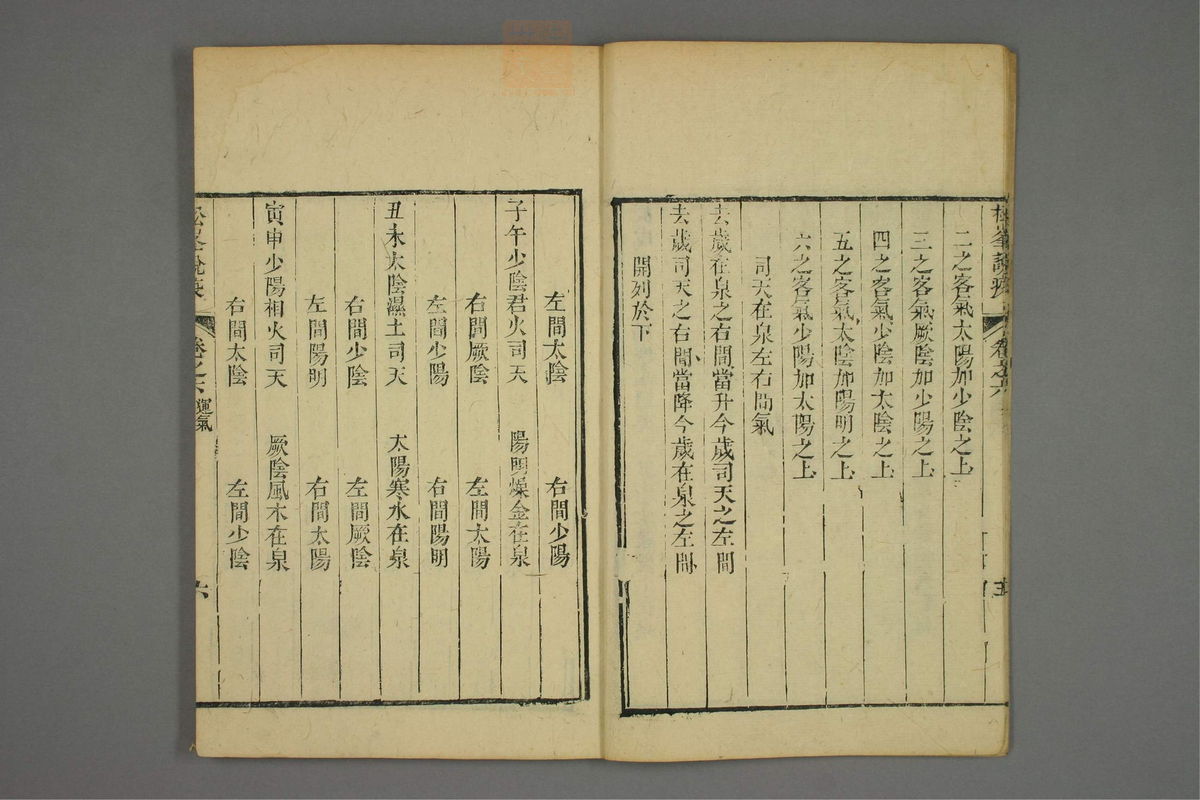 二之客氣太陽加少陰之上
三之客氣厥陰加少陽之上
四之客氣少陰加太陰之上
五之客氣太陰加陽明之上
六之客氣少陽加太陽之上
司天在泉左右間氣
去歲在泉之右間當升今歲司天之左間
去歲司天之右間當降今歲在泉之左間
開列於下
左間太陰 右間少陽
子午少陰君火司天 陽明燥金在泉
右間厥陰 左間太陽
左間少陽 右間陽明
丑未太陰濕土司天 太陽寒水在泉
右間少陰 左間厥陰
左間陽明 右間太陽
寅申少陽相火司天 厥陰風木在泉
右間太陰 左間少陰
松峯說疫 卷之六 運氣 六